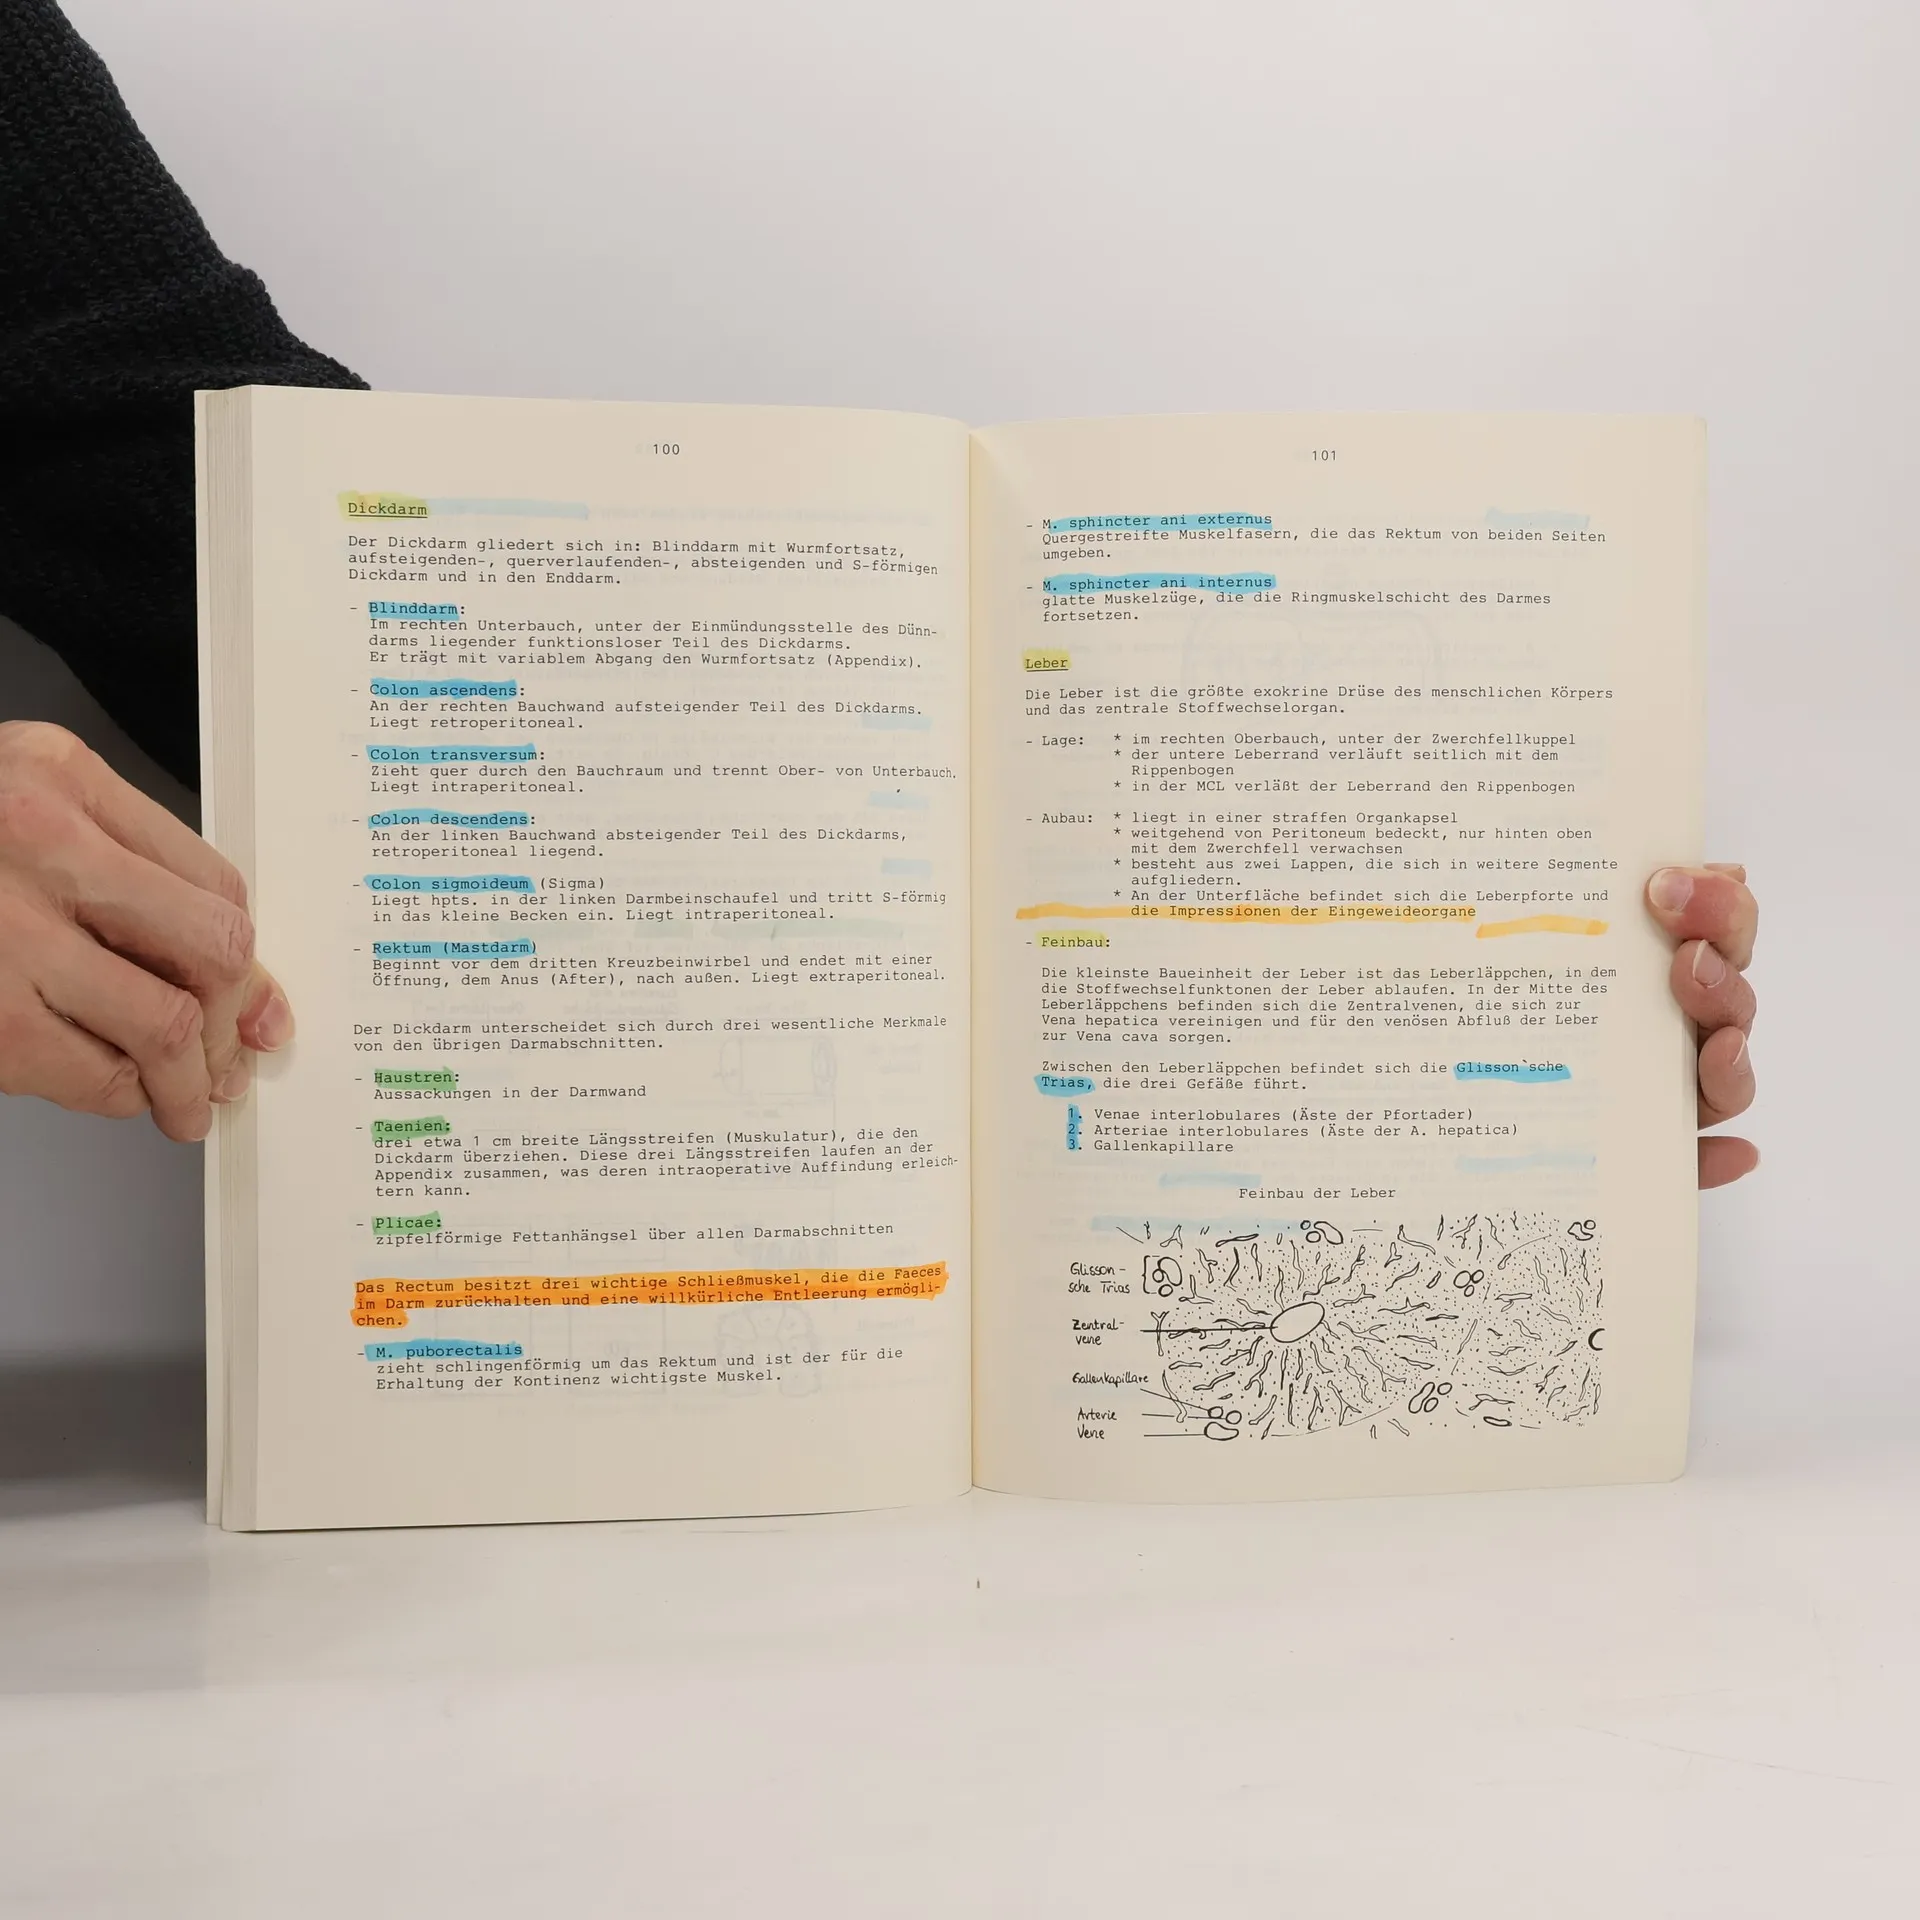 100
Dickdarm
Der Dickdarm gliedert sich in: Blinddarm mit Wurmfortsatz,
aufsteigenden-, querverlaufenden-, absteigenden und S-förmigen
Dickdarm und in den Enddarm.
- Blinddarm:
Im rechten Unterbauch, unter der Einmündungsstelle des Dünn-
darms liegender funktionsloser Teil des Dickdarms.
Er trägt mit variablem Abgang den Wurmfortsatz (Appendix).
- Colon ascendens:
An der rechten Bauchwand aufsteigender Teil des Dickdarms.
Liegt retroperitoneal.
- Colon transversum:
Zieht quer durch den Bauchraum und trennt Ober- von Unterbauch.
Liegt intraperitoneal.
- Colon descendens:
An der linken Bauchwand absteigender Teil des Dickdarms,
retroperitoneal liegend.
- Colon sigmoideum (Sigma)
Liegt hpts. in der linken Darmbeinschaufel und tritt S-förmig
in das kleine Becken ein. Liegt intraperitoneal.
- Rektum (Mastdarm)
Beginnt vor dem dritten Kreuzbeinwirbel und endet mit einer
Öffnung, dem Anus (After), nach außen. Liegt extraperitoneal.
Der Dickdarm unterscheidet sich durch drei wesentliche Merkmale
von den übrigen Darmabschnitten.
- Haustren:
Aussackungen in der Darmwand
- Taenien:
drei etwa 1 cm breite Längsstreifen (Muskulatur), die den
Dickdarm überziehen. Diese drei Längsstreifen laufen an der
Appendix zusammen, was deren intraoperative Auffindung erleich-
tern kann.
- Plicae:
zipfelförmige Fettanhängsel über allen Darmabschnitten
Das Rectum besitzt drei wichtige Schließmuskel, die die Faeces
im Darm zurückhalten und eine willkürliche Entleerung ermögli-
chen.
- M. puborectalis
zieht schlingenförmig um das Rektum und ist der für die
Erhaltung der Kontinenz wichtigste Muskel.
101
- M. sphincter ani externus
Quergestreifte Muskelfasern, die das Rektum von beiden Seiten
umgeben.
- M. sphincter ani internus
glatte Muskelzüge, die die Ringmuskelschicht des Darmes
fortsetzen.
Leber
Die Leber ist die größte exokrine Drüse des menschlichen Körpers
und das zentrale Stoffwechselorgan.
- Lage: * im rechten Oberbauch, unter der Zwerchfellkuppel
* der untere Leberrand verläuft seitlich mit dem
Rippenbogen
* in der MCL verläßt der Leberrand den Rippenbogen
- Aubau: * liegt in einer straffen Organkapsel
* weitgehend von Peritoneum bedeckt, nur hinten oben
mit dem Zwerchfell verwachsen
* besteht aus zwei Lappen, die sich in weitere Segmente
aufgliedern.
* An der Unterfläche befindet sich die Leberpforte und
die Impressionen der Eingeweideorgane
- Feinbau:
Die kleinste Baueinheit der Leber ist das Leberläppchen, in dem
die Stoffwechselfunktonen der Leber ablaufen. In der Mitte des
Leberläppchens befinden sich die Zentralvenen, die sich zur
Vena hepatica vereinigen und für den venösen Abfluß der Leber
zur Vena cava sorgen.
Zwischen den Leberläppchen befindet sich die Glisson`sche
Trias, die drei Gefäße führt.
1. Venae interlobulares (Äste der Pfortader)
2. Arteriae interlobulares (Äste der A. hepatica)
3. Gallenkapillare
Feinbau der Leber
Glisson-
sche Trias
Zentral-
vene
Gallenkapillare
Arterie
Vene